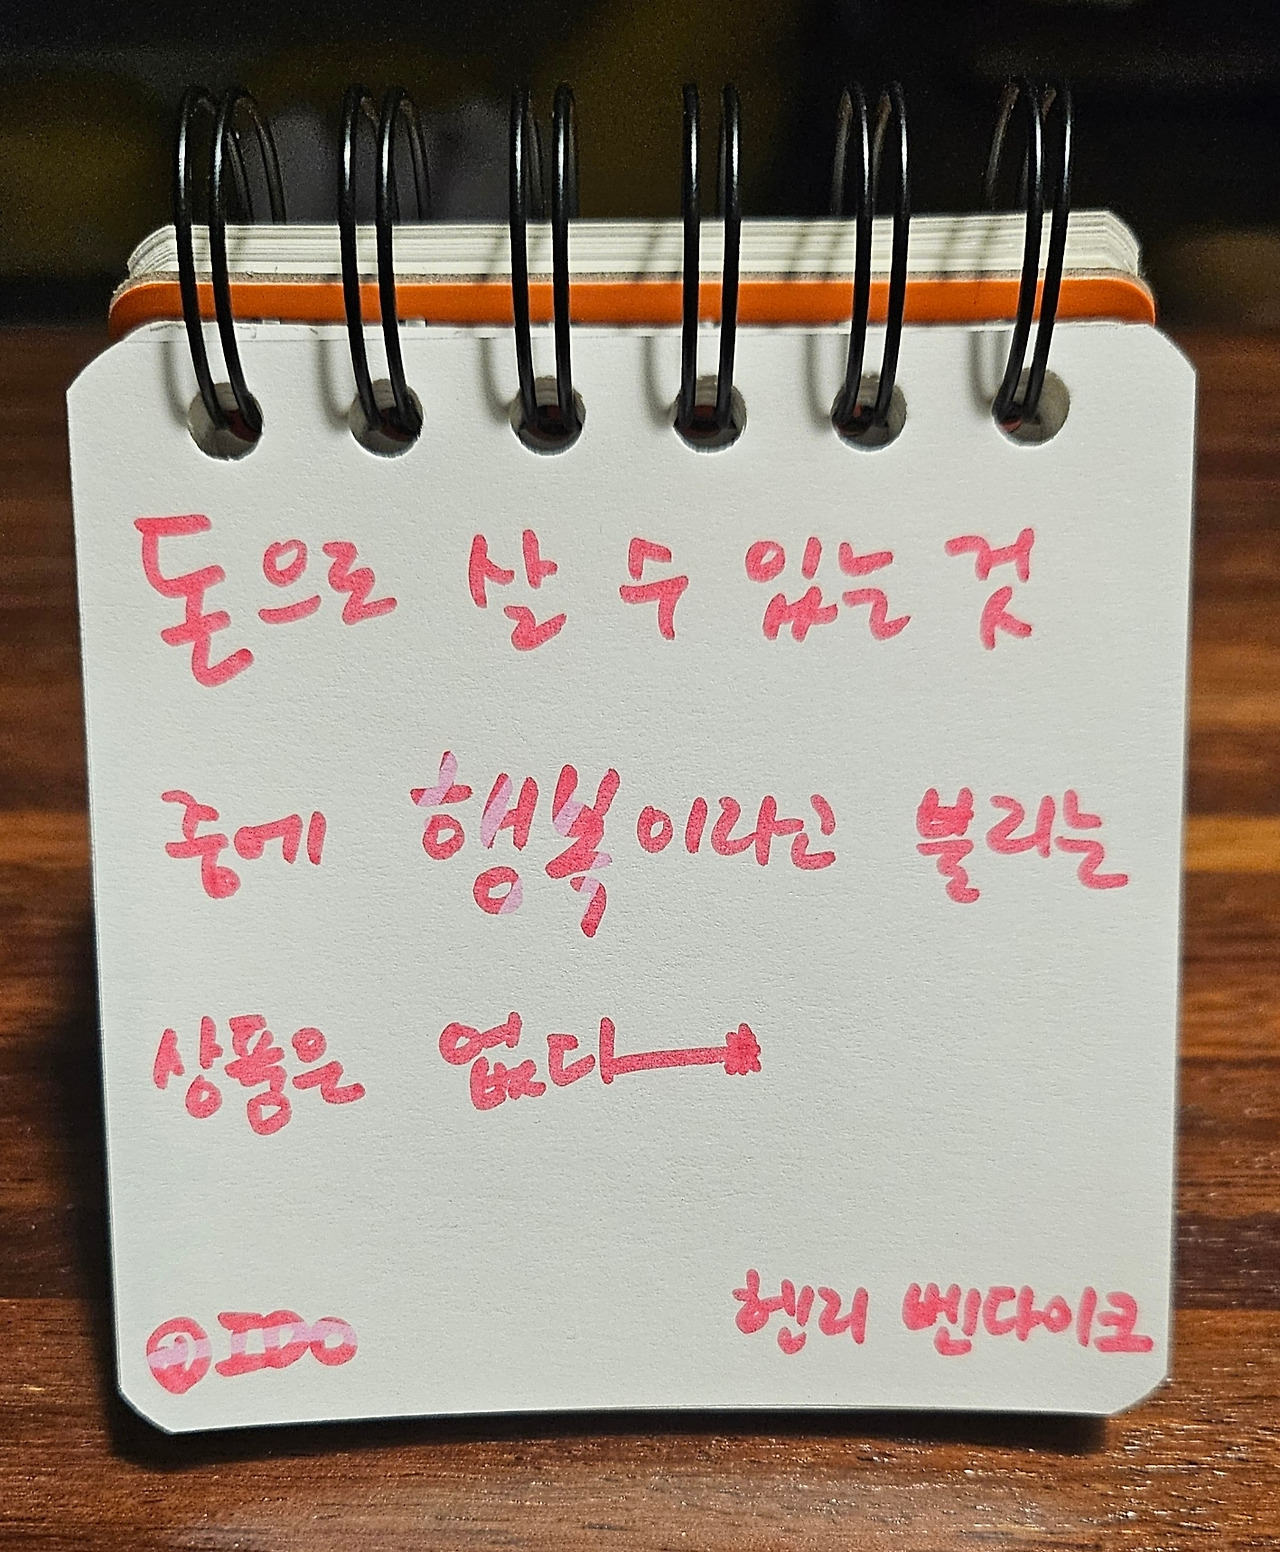 돈으로 살 수 있는 것
중에 행복이라고 불리는
상품은 없다
헨리 벤다이크
IDO